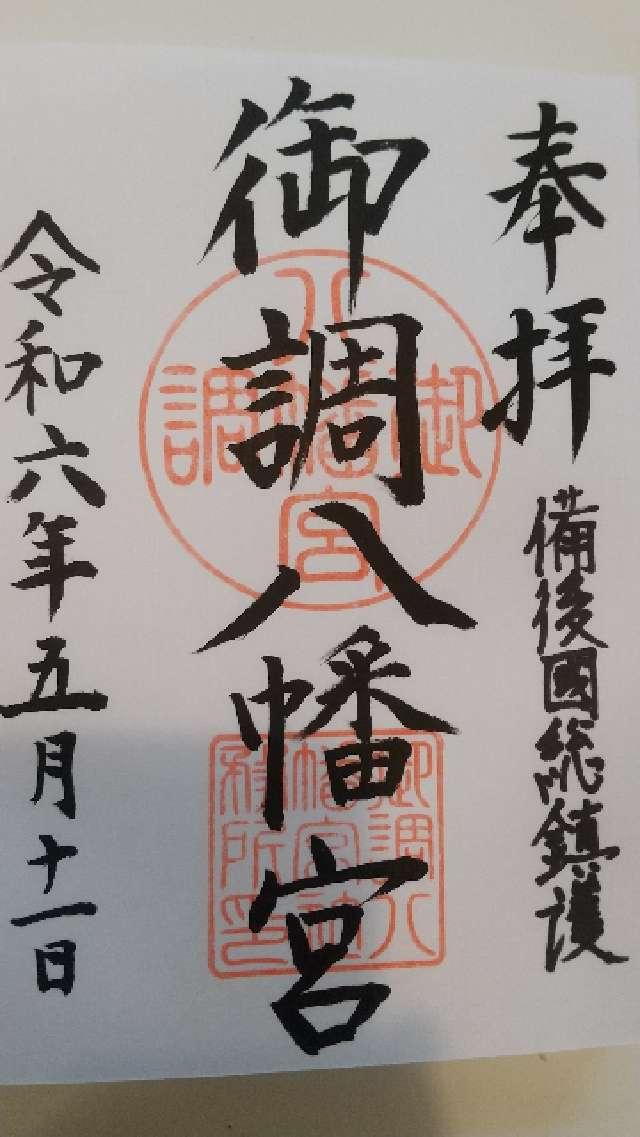 奉拝
備後國総鎮護
御調八幡宮
令和六年五月十一日
八幡宮
御調
御調八
幡宮社
務所印